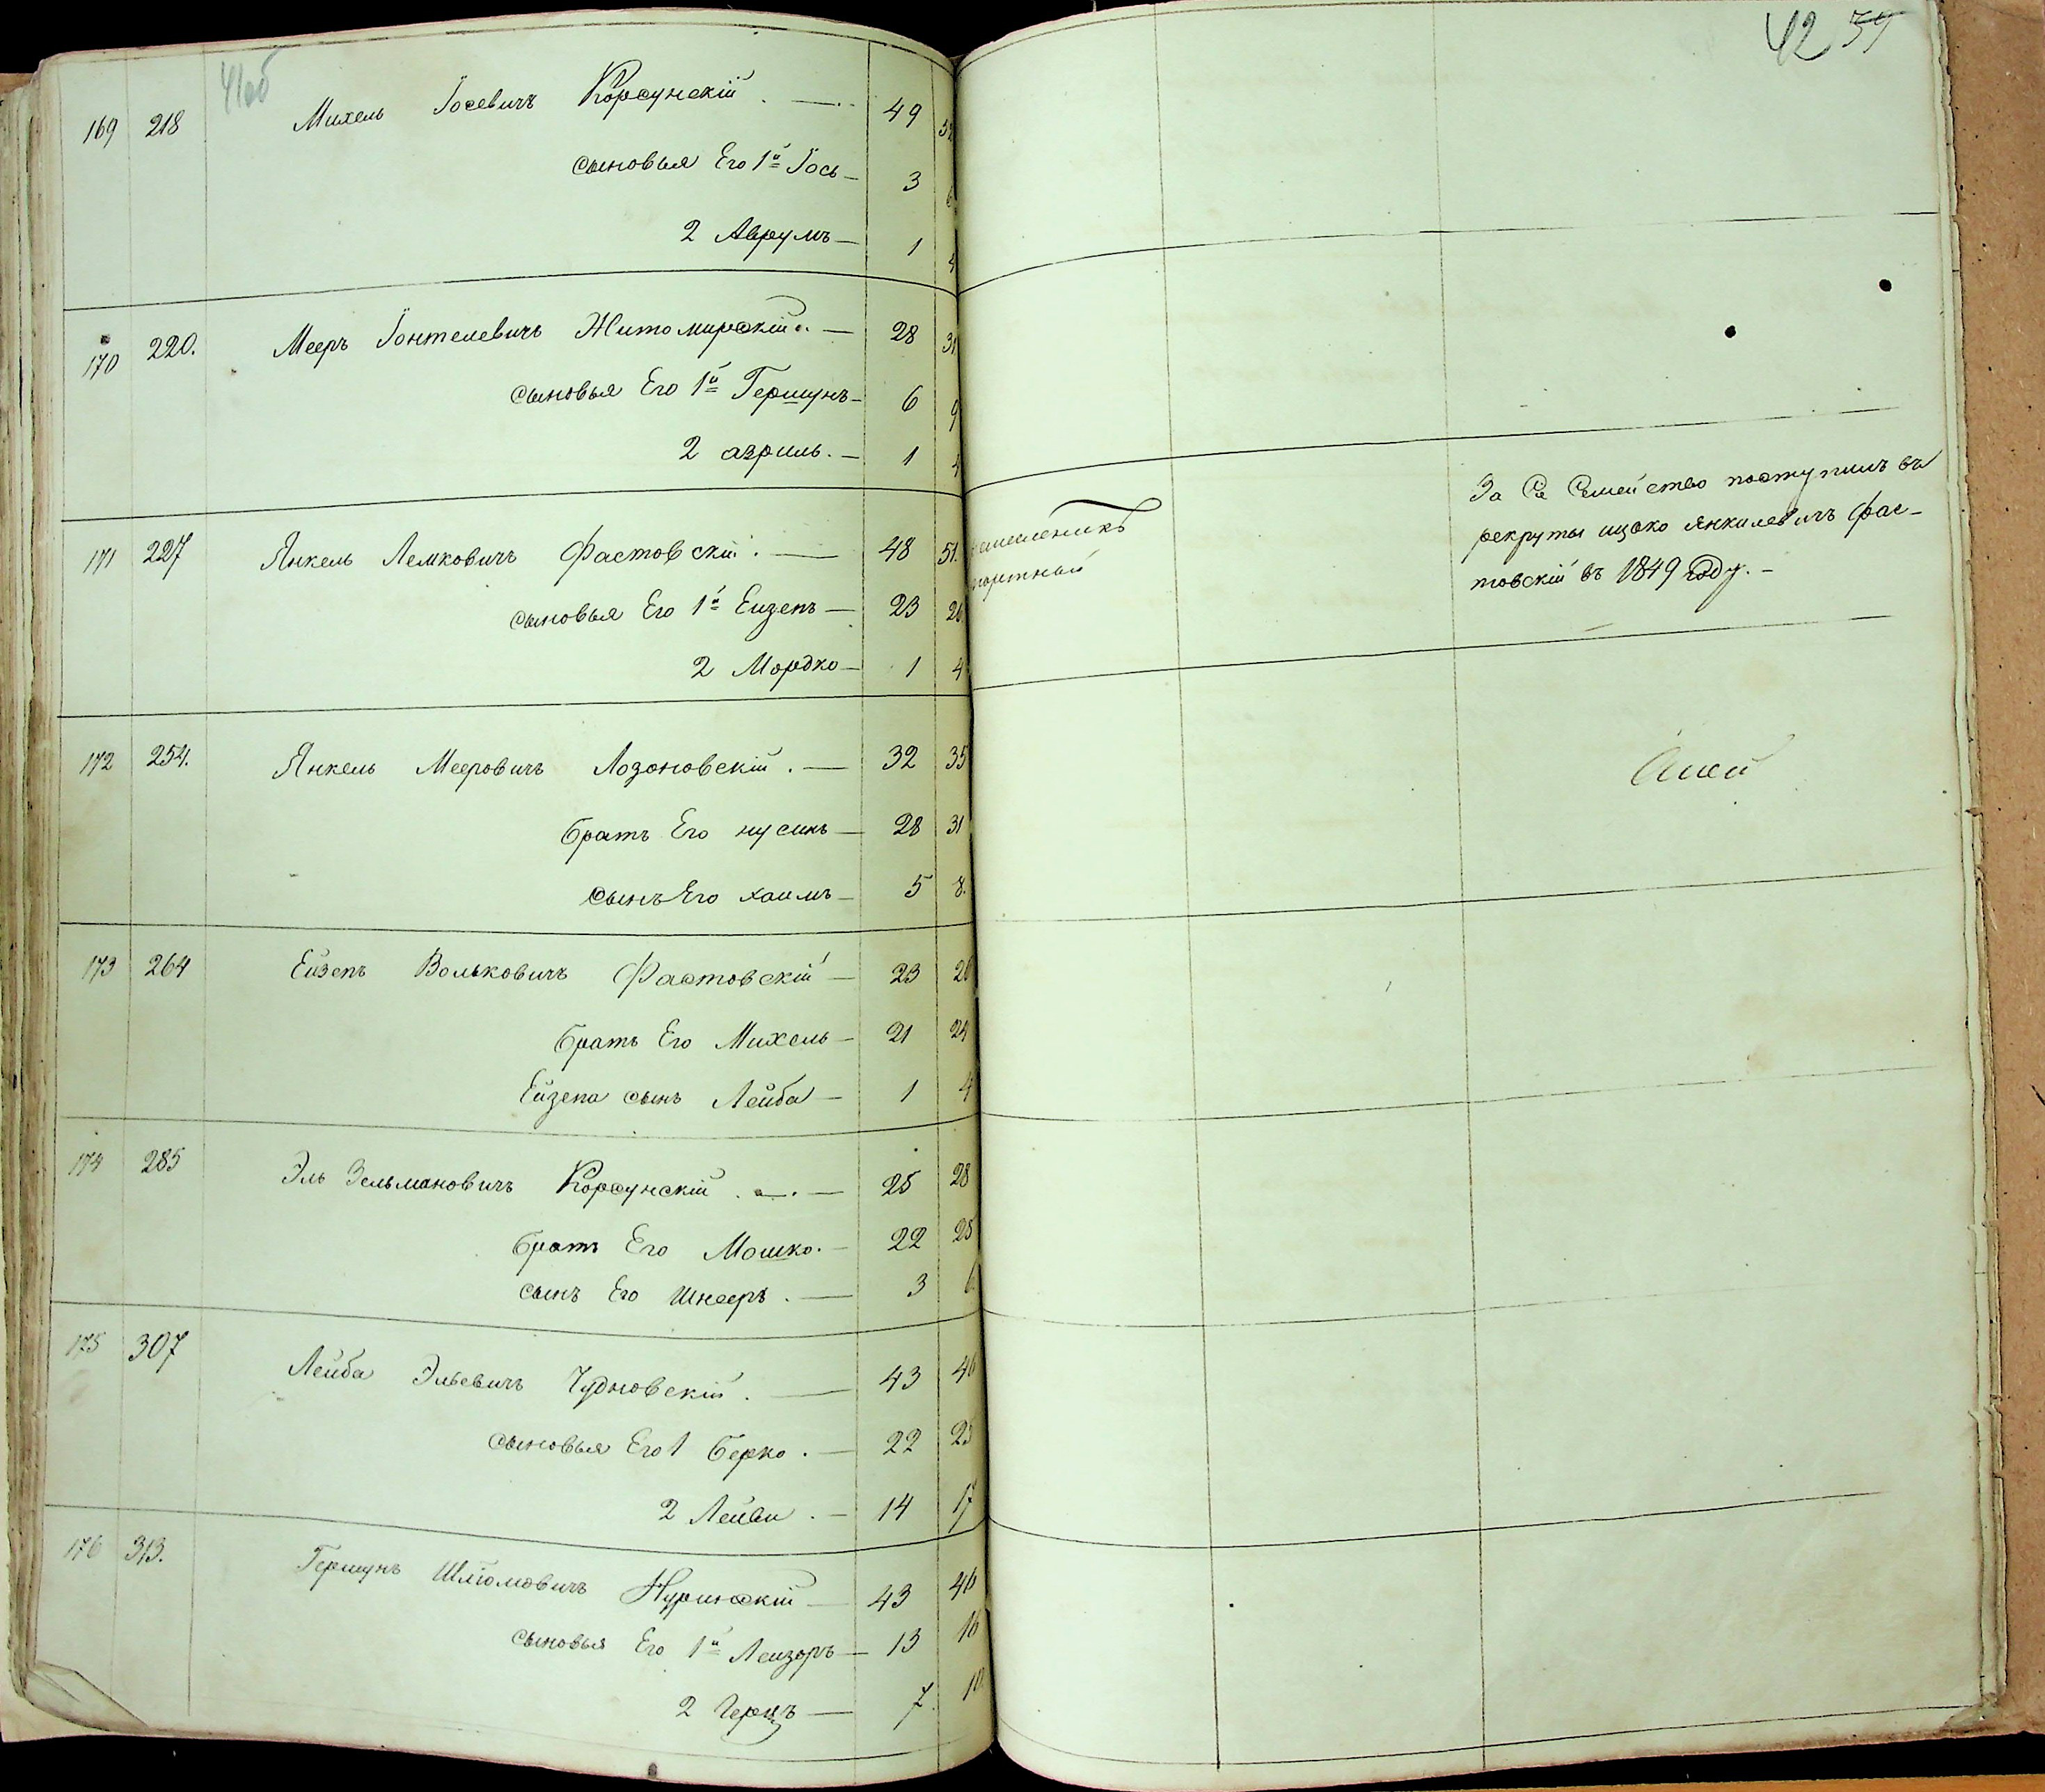 41об
169 218 Михель Іосевичъ Корсунскій . — 49
сыновья Его 1й Іось — 3 6
2 Аврумъ — 1 4
170 220. Мееръ Іонтелевичъ Житомирскій . — 28 31
сыновья Его 1й Гершунъ — 6 9
2 азриль . — 1 4
171 227 Янкель Лемковичъ Фастовскій . — 48 51.
сыновья Его 1й Еизепъ — 23 26
2 Мордко — 1 4
172 254. Янкель Мееровичъ Лозоновскій . — 32 35
братъ Его нусинъ — 28 31
сынъ Его хаимъ — 5 8.
173 264 Ейзепъ Вольковичъ Фастовскій — 23 26
братъ Его Михель — 21 24
Ейзепа сынъ Лейба — 1 4
174 285 Эль Зельмановичъ Корсунскій . — . — 25 28
братъ Его Мошко . — 22 25
сынъ Его Шнееръ . — 3 6
175 307 Лейба Эльевичъ Чудновскій . — 43 46
сыновья Его 1 берко . — 22 25
2 Лейви . — 14 17
176 313. Гершунъ Шліомовичъ — 43 46
сыновья Его 1й Леизоръ — 13 16
2 Герцъ — 7. 10
42 59
портный
За Се Семейство поступилъ въ
рекруты ицко Янкилевичъ Фас-
товскій въ 1849 году. –